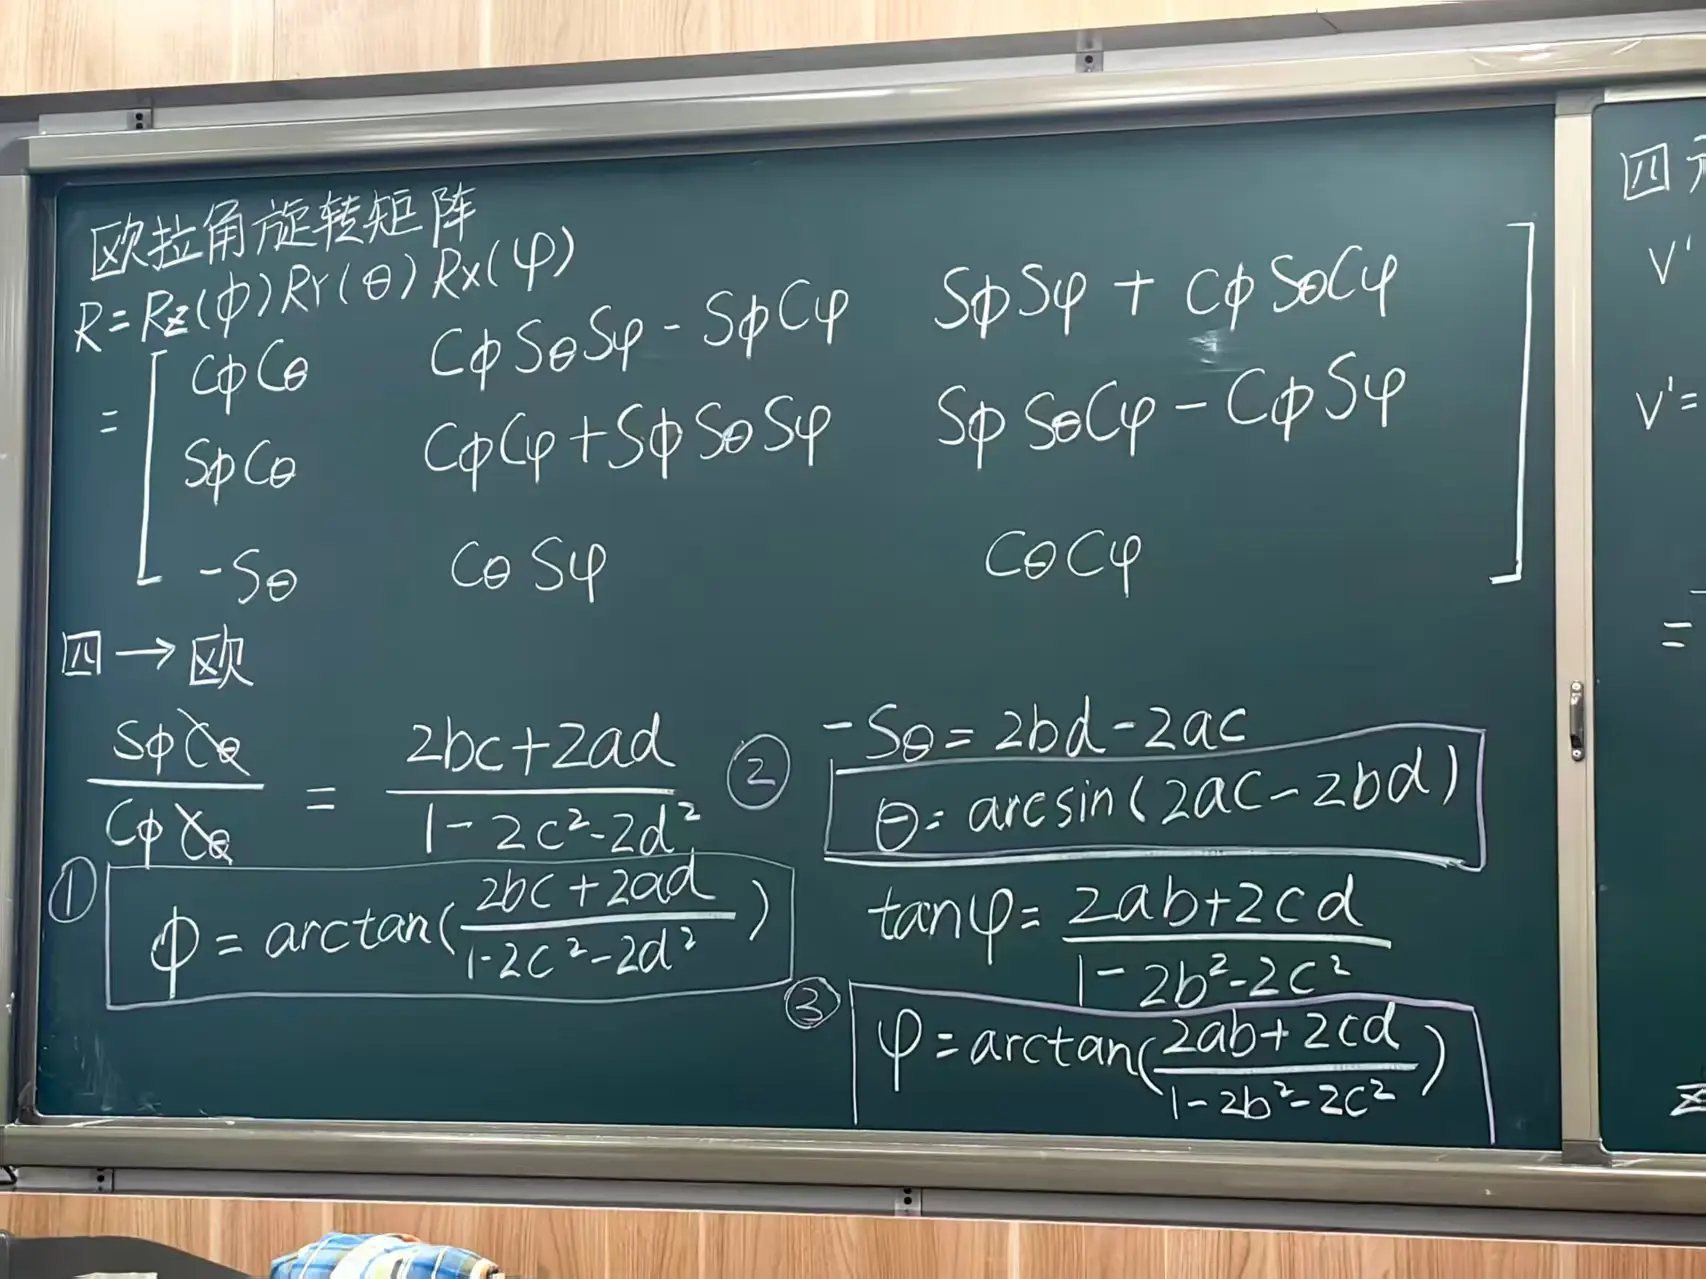 欧拉角旋转矩阵
R=Rz(ϕ)RY(θ)RX(φ)
= [ CϕCθ  CϕSθSφ-SϕCφ  SϕSφ+CϕSθCφ
SϕCθ  CϕCφ+SϕSθSφ  SϕSθCφ-CϕSφ
-Sθ  CθSφ  CθCφ ]
四→欧
SϕCθ/CϕCθ = 2bc+2ad/1-2c²-2d²
① ϕ=arctan(2bc+2ad/1-2c²-2d²)
② -Sθ=2bd-2ac
θ=arcsin(2ac-2bd)
tanφ=2ab+2cd/1-2b²-2c²
③ φ=arctan(2ab+2cd/1-2b²-2c²)
四
V'
V'=
=